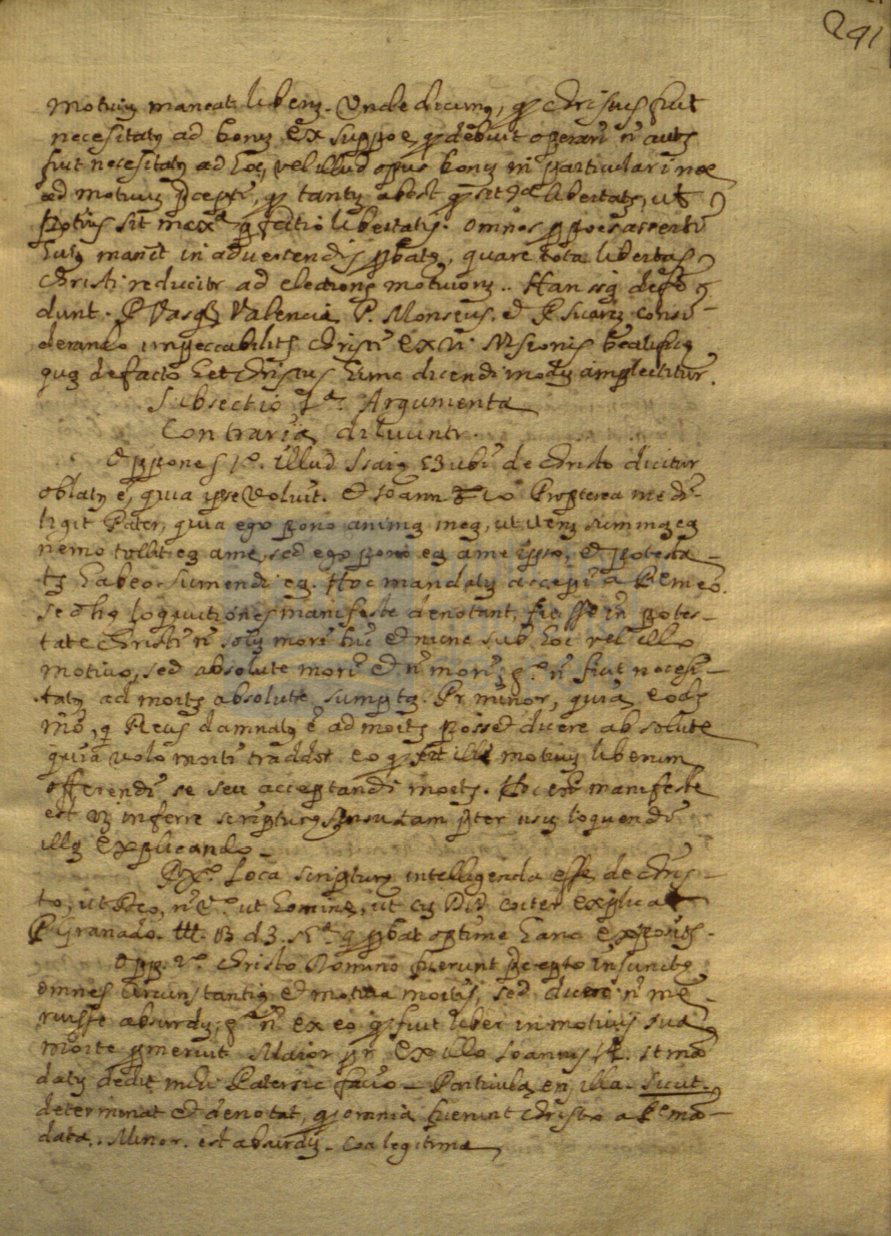 291
motivū maneat liberū. Unde dicimꝰ, qd Christus fuit
necesitatꝰ ad bonū ex suppoe, qd debuit operari nō autē
fuit necesitatꝰ ad hoc, vel illud opus bonū in particulari nec
ad motivū pcepti, qd tantū abest qd sit cōa libertatē, ut
potius sit maxa perfectio libertatis. Omnes
in advertendis, quare tota libertas
Christi reducitr ad electionē motivorū. Hanc sīa defē
dunt. P Vasqz Valencia, P. Alonseus. et P Suariz consi-
derando impeccabilitē Christi ex vi visionis beatificę
quę de facto Christus hunc dicendi modū amplectitur.
Subsectio 1ª. Argumenta
Contraria diluuntr.
Oppones 1º. illud Isaię 53 ubi de Christo dicitur
oblatꝰ ē, quia ipse voluit. et Ioann 10 Propterea me di-
ligit Pater, quia ego pono animā meā, ut iterū summā eā
nemo tollit eā a me, sed ego pono eā a me ipso, et potesta-
tē habeo sumendi eā. Hoc mandatū accepi a Pe meo.
sed hę loquutiónes manifeste denotant, fuisse in potes-
tate Christi nō solū mori tūc et nunc sub hoc vel illo
motivo, sed absolute mori et nō mori; gº nō fuit necesi-
tatꝰ ad mortē absolute sumptā. Pr minor, quia eodē
mō, q Reus damnatꝰ ē ad mortē posset dicere absolute
quia volo morti traddor eo qd sit illi motivū liberum
offerendi se seu acceptandi mortē. Hoc manifeste
est inferre scripturę pter usū loquendi
illā explicando.
Rº. Loca scripturę intelligenda esse de Chris-
to, ut Deo, nō vº ut homine, ut cū Did. coiter explicat
P Granado. ttt. 13 d 3. s 1ª. q pbat optime hanc expōnē.
Opp. 2º. Christo Domino fuerunt pcepto iniunctę
omnes circunstantię et motiva mortis, sed dicere nō me-
ruisse absurdū; gº nō ex eo qd fuit liber in motivis sua
morte pmeruit Maior pr ex illo Ioannis 14. st mā
datū dedit mihi Pater sic facio. Particula, eni illa. Sicut.
determinat et denotat, qd omnia fuerunt Christo a Pe mā-
data. Minor. est absurdū. Cōa legitima